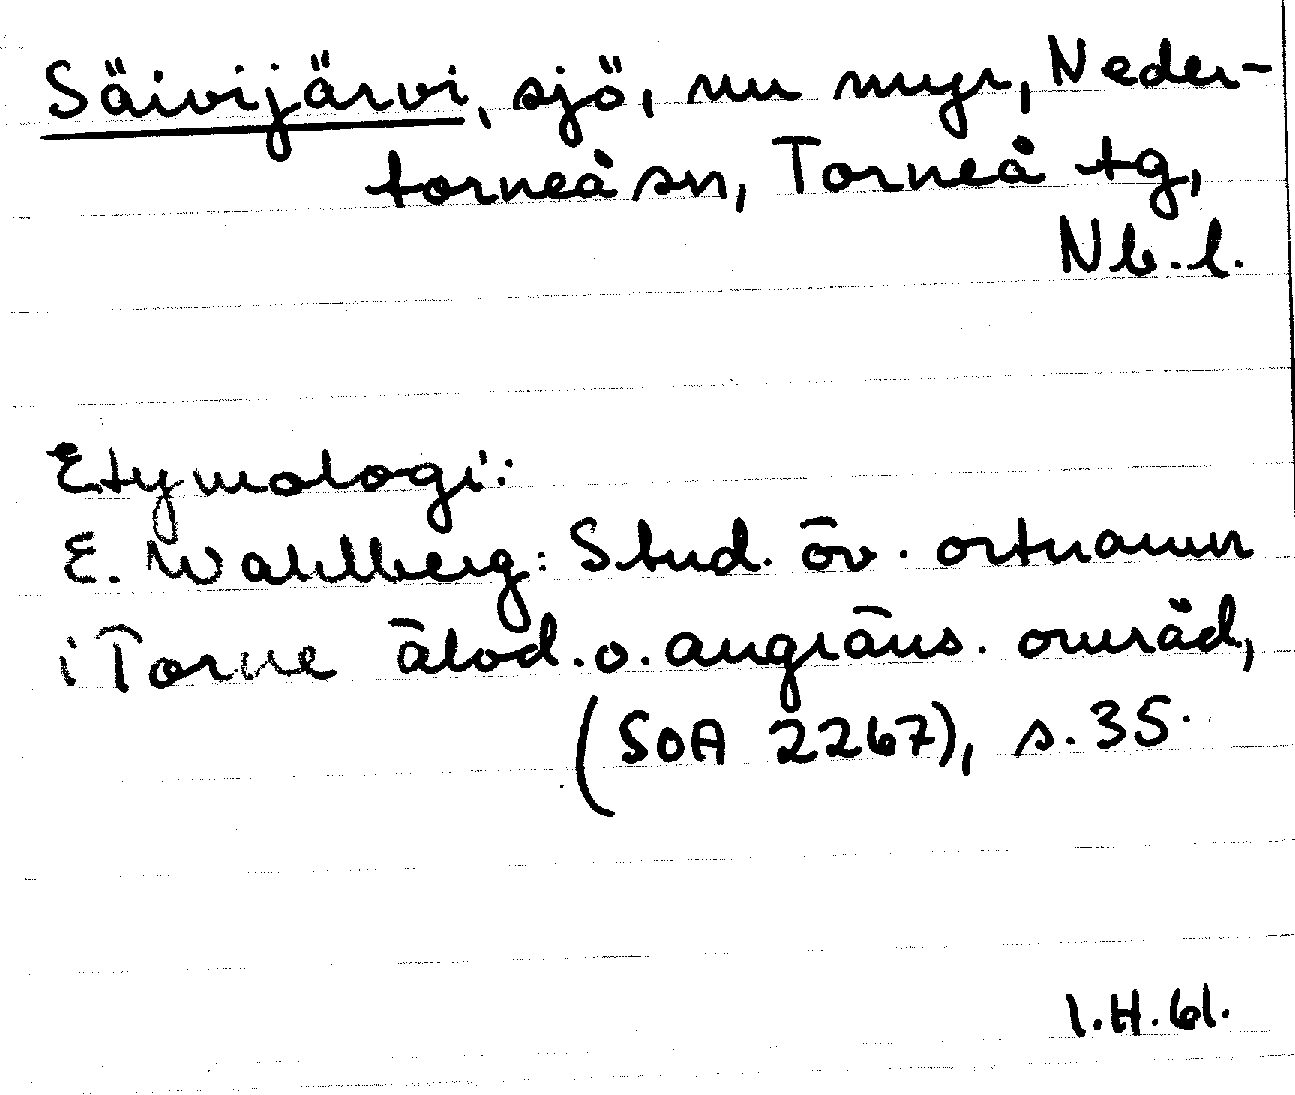 Säivijärvi, sjö, nu myr, Neder-
torneå sn, Torneå tg,
Nb.l.
Etymologi:
E. Wahlberg: Stud. öv. ortnamn
i Torne älvd. o. angräns. områd,
(SOA 2267), s. 35.
I.H.61.